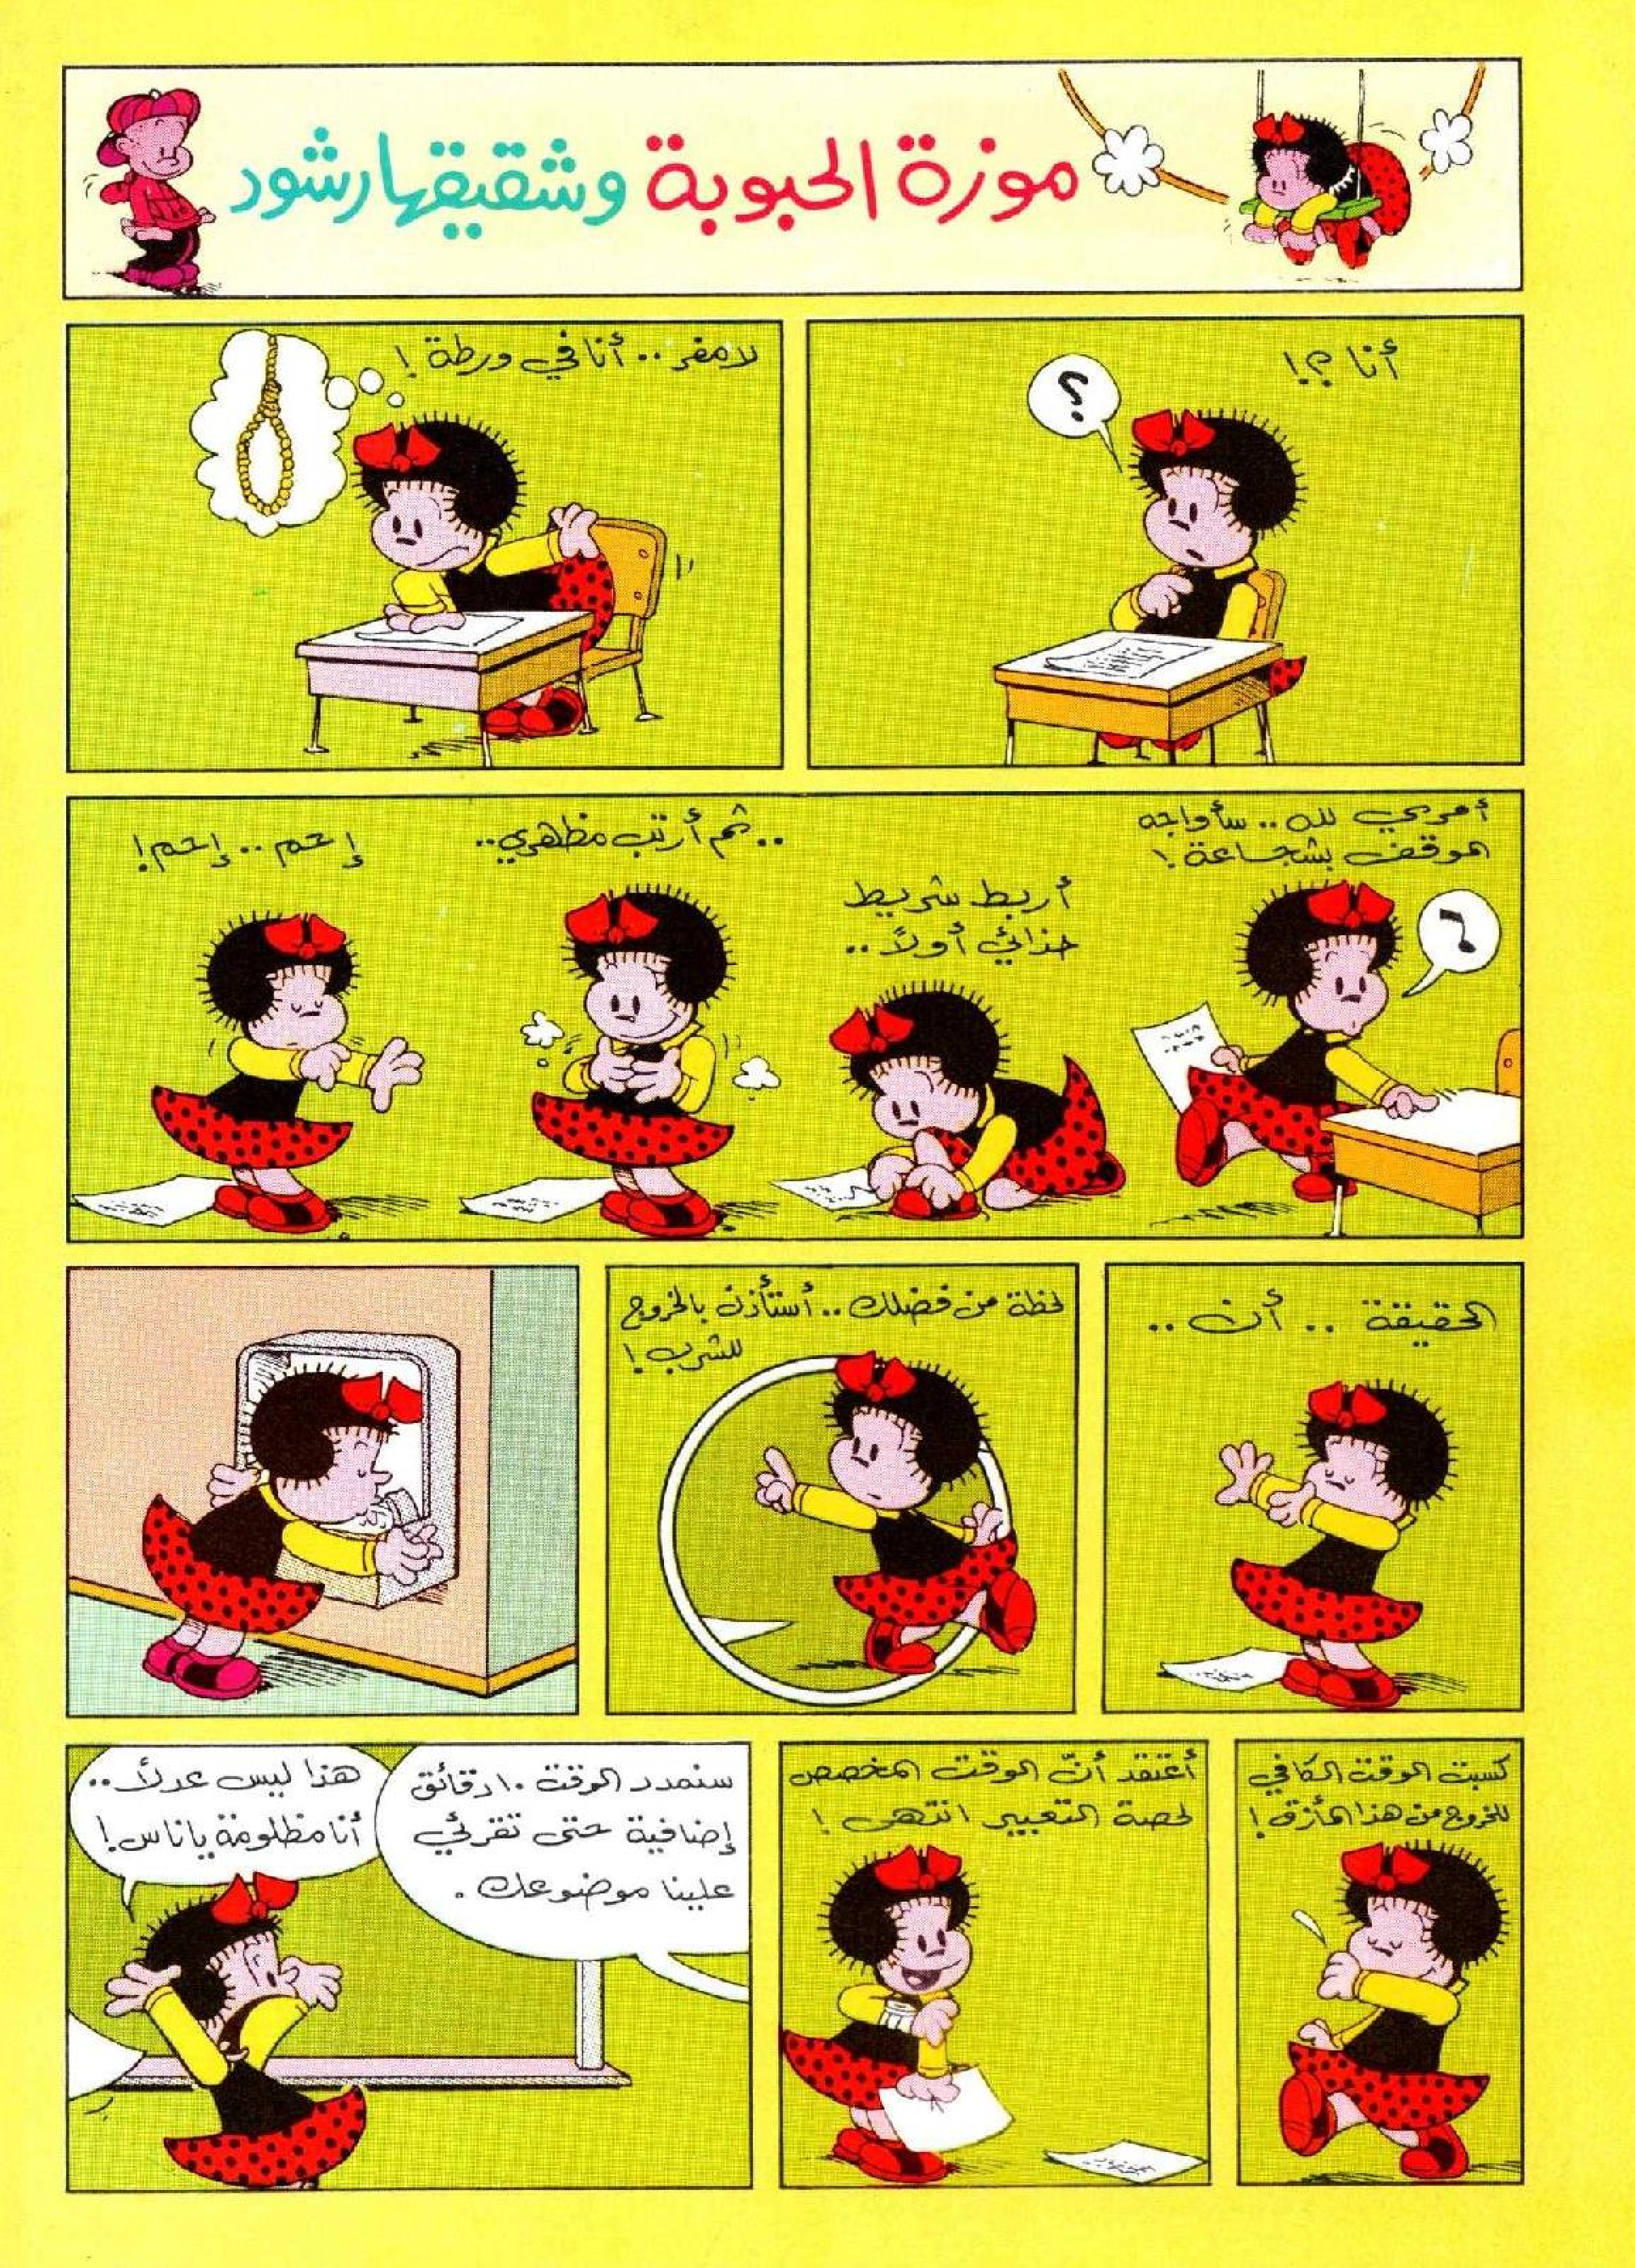 موزة الحبوبة وشقيقها رشود
أنا ؟!
؟
لا مفر .. أنا في ورطة !
أمري لله .. سأواجه
الموقف بشجاعة !
أربط شريط
حذائي أولاً ..
.. ثم أرتب مظهري ..
إحم .. إحم !
الحقيقة .. أن ..
لحظة من فضلك .. أستأذن بالخروج
للشرب !
كسبت الوقت الكافي
للخروج من هذا المأزق !
أعتقد أنّ الوقت المخصص
لحصة التعبير انتهى !
سنمدد الوقت ١٠ دقائق
إضافية حتى تقرئي
علينا موضوعك .
هذا ليس عدلاً ..
أنا مظلومة يا ناس !